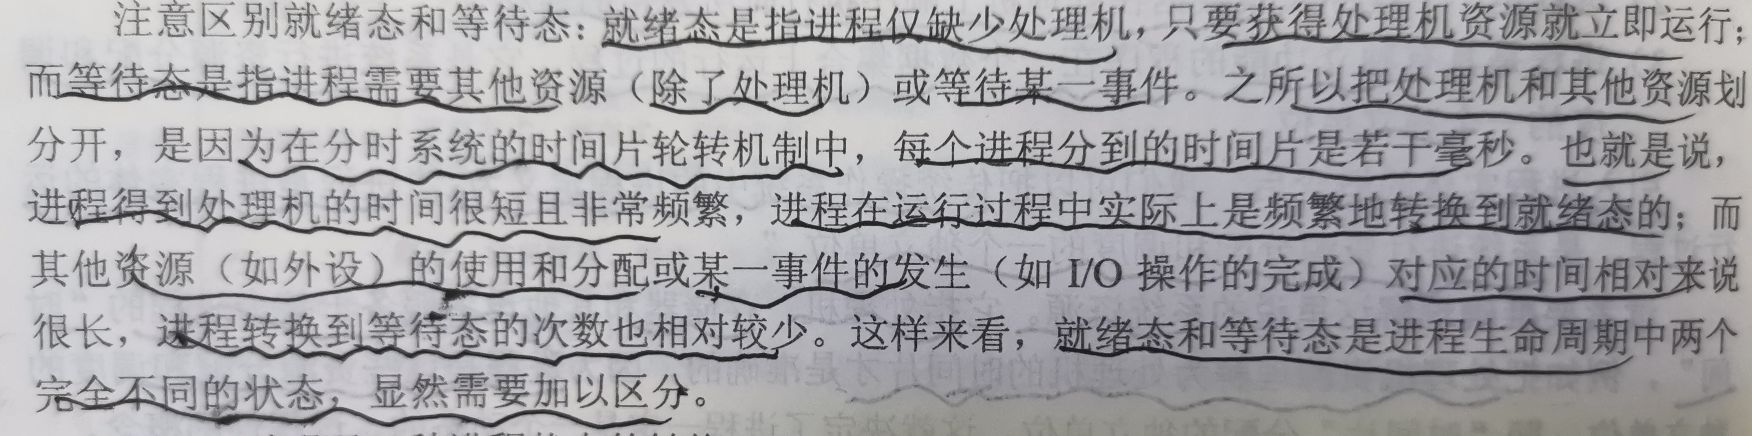 注意区别就绪态和等待态：就绪态是指进程仅缺少处理机，只要获得处理机资源就立即运行；
而等待态是指进程需要其他资源（除了处理机）或等待某一事件。之所以把处理机和其他资源划
分开，是因为在分时系统的时间片轮转机制中，每个进程分到的时间片是若干毫秒。也就是说，
进程得到处理机的时间很短且非常频繁，进程在运行过程中实际上是频繁地转换到就绪态的；而
其他资源（如外设）的使用和分配或某一事件的发生（如 I/O 操作的完成）对应的时间相对来说
很长，进程转换到等待态的次数也相对较少。这样来看，就绪态和等待态是进程生命周期中两个
完全不同的状态，显然需要加以区分。